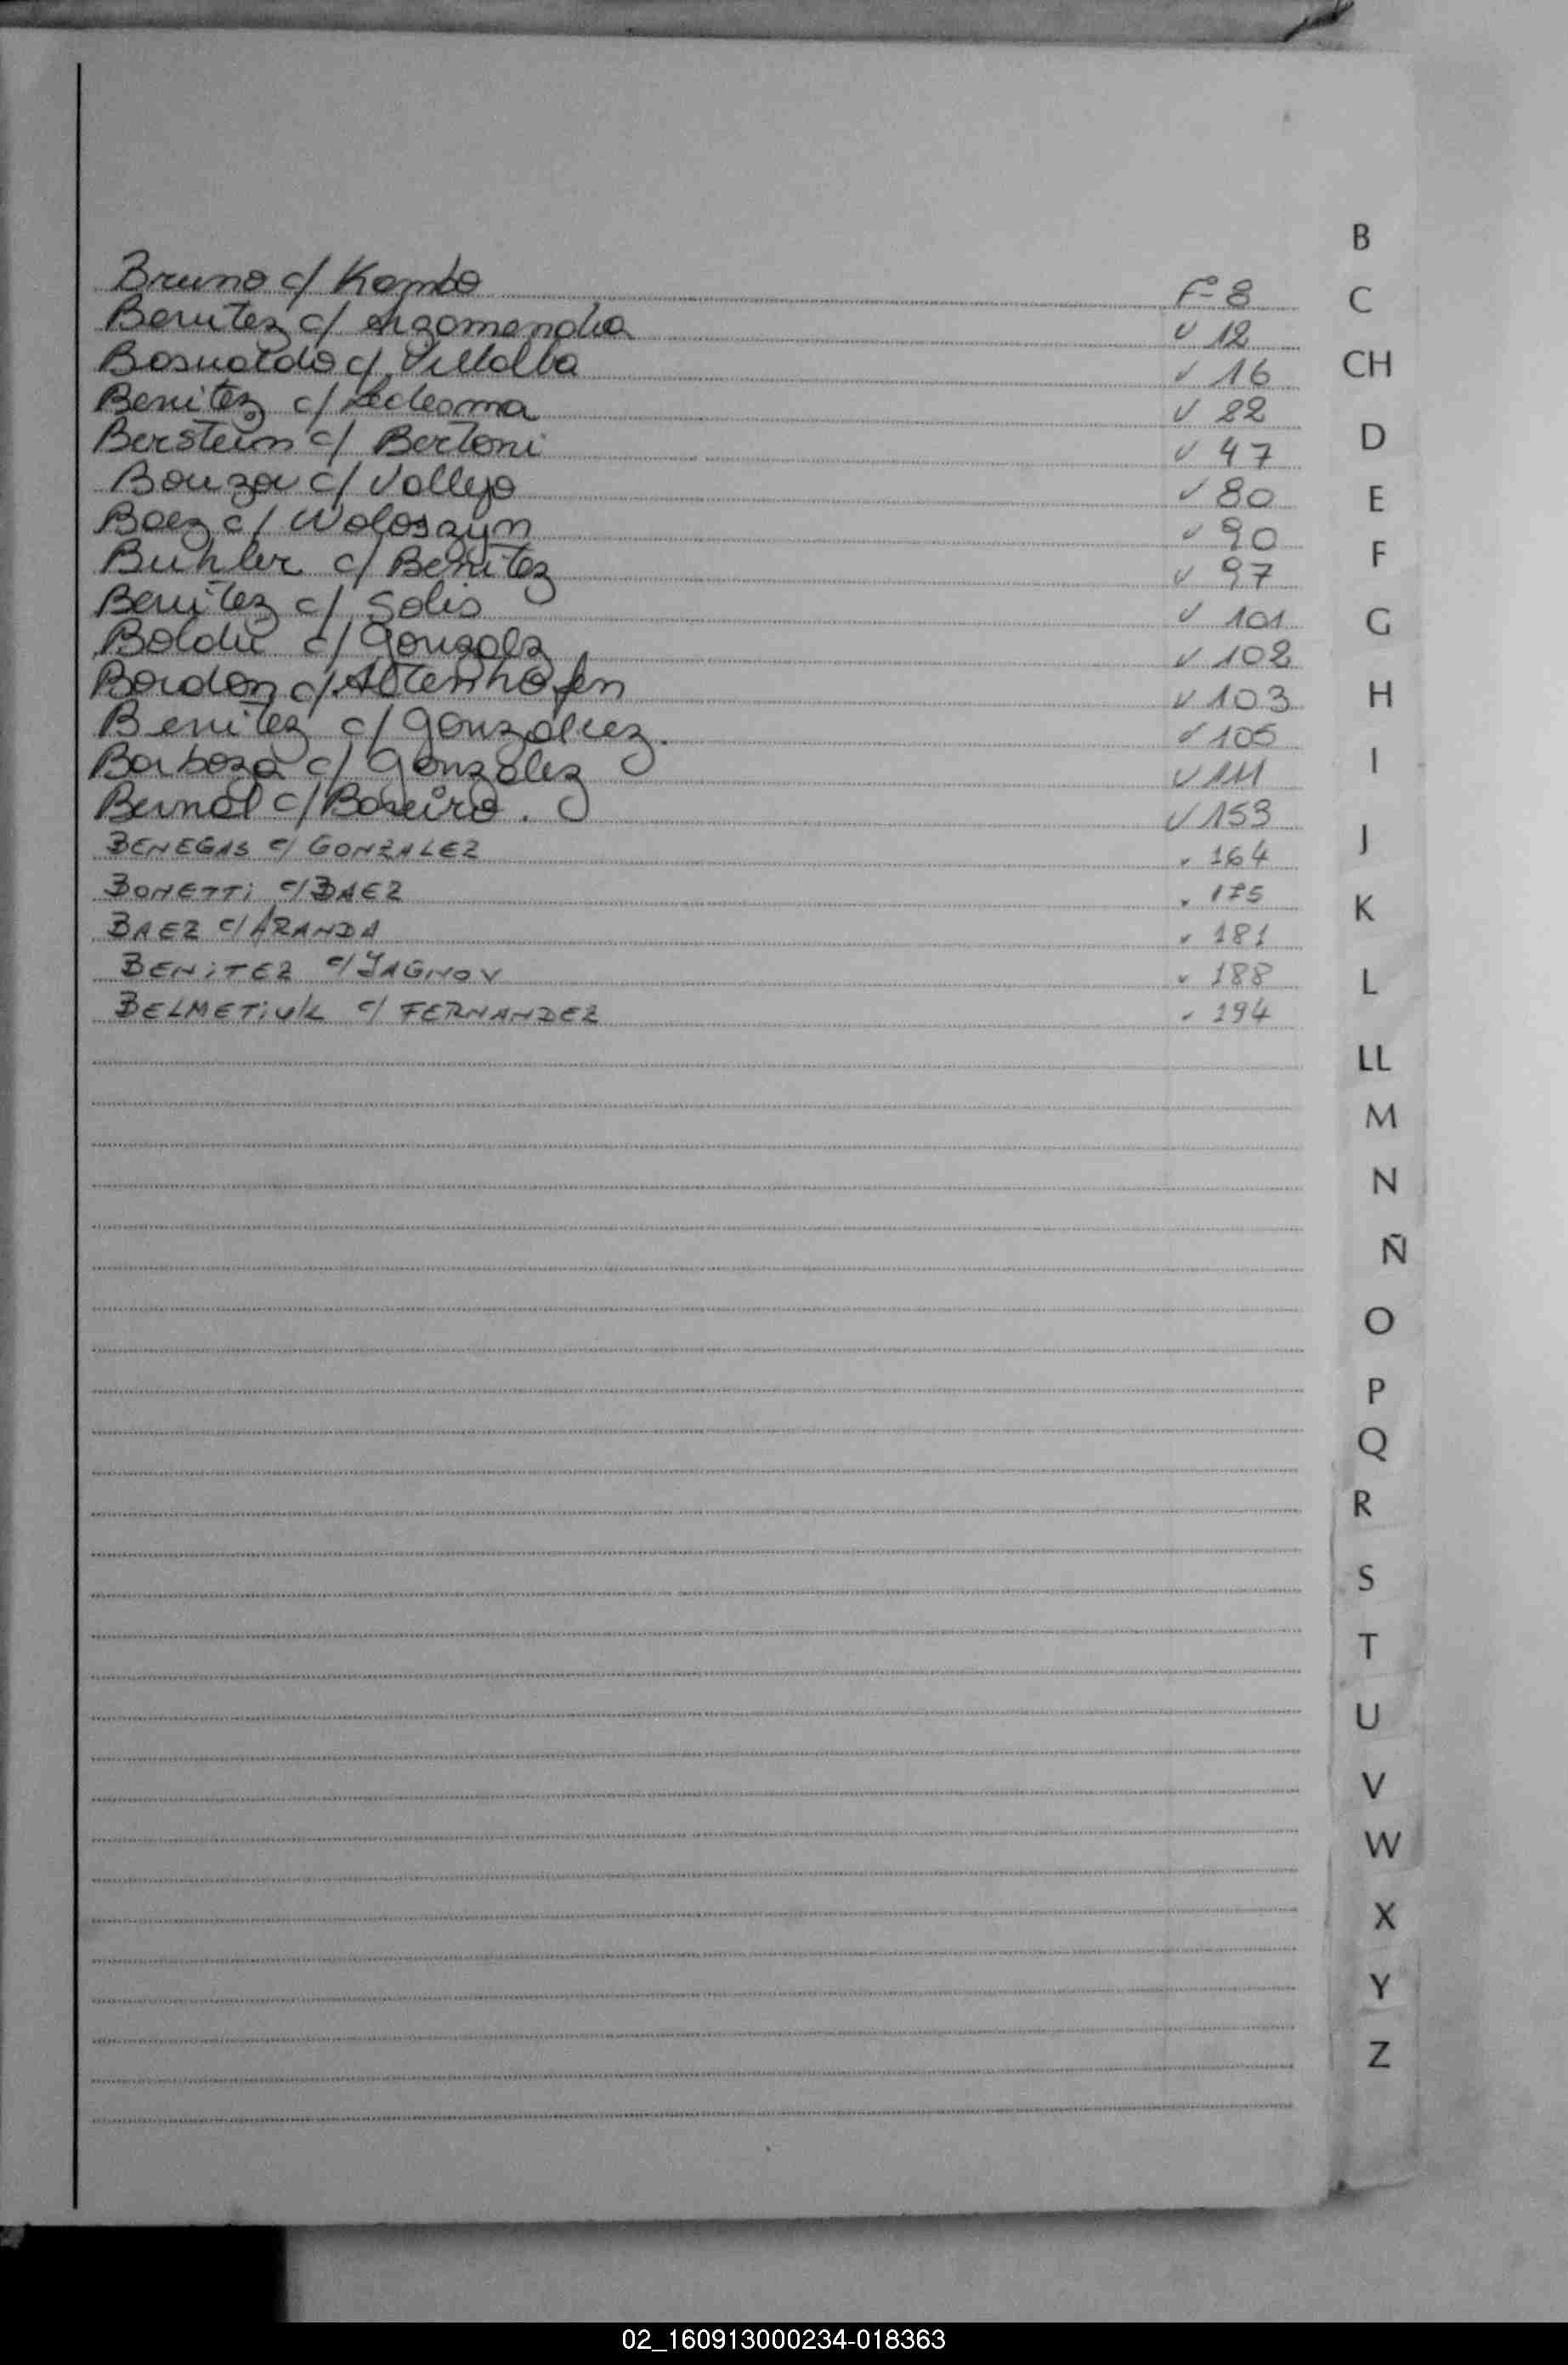 Bruno c/ Kombo F= 8
Benitez c/ Argomendia ✓ 12
Basualdo c/ Villalba ✓ 16
Benitez c/ Ledesma ✓ 22
Berstein c/ Bertoni ✓ 47
Bouzov c/ Vallejo ✓ 80
Baez c/ Woloszyn ✓ 90
Buhler c/ Benitez ✓ 97
Benitez c/ Solis ✓ 101
Boldú c/ Gonzalez ✓ 102
Bordon c/ Altenhofen ✓ 103
Benitez c/ Gonzálvez. ✓ 105
Barboza c/ González ✓ 111
Bernal c/ Boseiro. ✓ 153
BENEGAS c/ GONZALEZ 164
BONETTI c/ BAEZ 175
BAEZ c/ ARANDA 181
BENITEZ c/ YAGNOV 188
BELMETIUK c/ FERNANDEZ 194
B
C
CH
D
E
F
G
H
I
J
K
L
LL
M
N
Ñ
O
P
Q
R
S
T
U
V
W
X
Y
Z
02_160913000234-018363